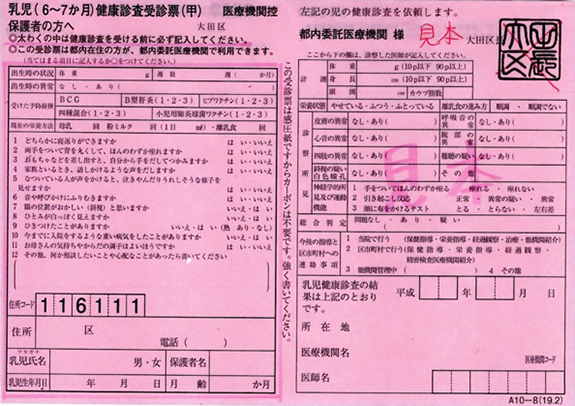 乳児(6~7か月)健康診査受診票(甲) 医療機関控
保護者の方へ 大田区
○太わくの中は健康診査を受ける前に必ず記入してください。
○この受診票は都内在住の方が、都内委託医療機関で利用できます。
(当てはまる項目に記入するか○をつけてください。)
出生時の状況 体重 g 週数 週( か月)
出生時の異常 なし・あり( )
受けた予防接種 BCG B型肝炎(1・2・3) ヒブワクチン(1・2・3)
四種混合(1・2・3) 小児用肺炎球菌ワクチン(1・2・3)
現在の栄養方法 母乳 回 粉ミルク 回(1日 mℓ)・離乳食 回
1 どちらかに寝返りができますか はい・いいえ
2 両手をついて背を丸くして、ほんのわずか座れますか はい・いいえ
3 おもちゃなどを差し出すと、自分から手をだしてつかみますか はい・いいえ
4 家族といるとき、話しかけるような声をだしますか はい・いいえ
5 なついている人が声をかけると、泣きやんだりうれしそうな様子を見せますか はい・いいえ
6 音や呼びかけにふりむきますか はい・いいえ
7 眼の位置がおかしい(斜視)と思いますか いいえ・はい
8 ひとみが白っぽく見えますか いいえ・はい
9 ひきつけたことがありますか いいえ・はい(熱 あり・なし)
10 今までに入院をするような重い病気をしたことがありますか いいえ・はい
11 お母さんの気持ちやからだの調子はよいほうですか はい・いいえ
12 その他、何か相談したいことや心配なことがあったら書いてください
住所コード 116111
住所 区
電話( )
フリガナ
乳児氏名 男・女 保護者名
乳児生年月日 年 月 日 月齢 か月
この受診票は感圧紙ですからカーボンは不要です。強く書いてください。
左記の児の健康診査を依頼します。
都内委託医療機関 様 見本 大田区長
ここから下の欄は、診察した医師が記入してください。
計測 体重 g (10p以下 90p以上)
身長 cm (10p以下 90p以上)
頭囲 cm カウプ指数
栄養状態 やせている・ふつう・ふとっている 離乳食の進み方 順調・順調でない
診察所見
皮膚の異常 なし・あり( ) 呼吸音の異常 なし・あり( )
心音の異常 なし・あり( ) 腹部の異常 なし・あり( )
四肢の異常 なし・あり( ) 聴聴の疑い なし・あり( )
斜視の疑い 白色瞳孔 なし・あり( ) その他
見本
神経学的所見及び運動機能
1 手をついてほんのわずか座る 座れる・座れない
2 引き起こし反応 正常・異常の疑い・異常
3 顔に布をかけるテスト とる・とらない 左右差
総合判定 問題なし・あり・疑い
今後の指導と区市町村への連絡事項
1 当院で行う(保健指導・栄養指導・経過観察・治療・他機関紹介)
2 区市町村で行う(保健指導・栄養指導・経過観察・精密検査医療機関紹介)
3 他機関管理中( ) 4 その他
乳児健康診査の結果は上記のとおりです。 平成 年 月 日
所在地
医療機関名 医療機関コード
医師名
A10-8(19.2)